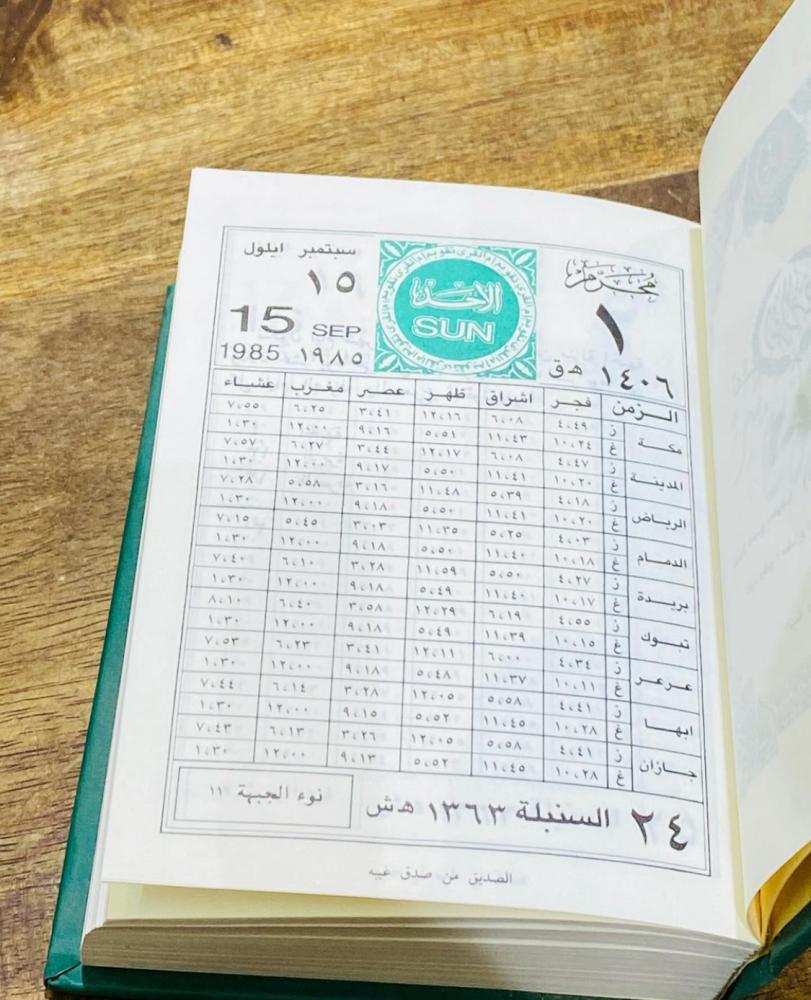 محرم
١
١٤٠٦ هـ ق
تقويم ام القرى
الاحد
SUN
سبتمبر ايلول
١٥
15 SEP
1985 ١٩٨٥
الزمن فجر اشراق ظهر عصر مغرب عشاء
مكة ز ٤،٤٩ ٦،٠٨ ١٢،١٦ ٣،٤١ ٦،٢٥ ٧،٥٥
غ ١٠،٢٤ ١١،٤٣ ٥،٥١ ٩،١٦ ١٢،٠٠ ١،٣٠
المدينة ز ٤،٤٧ ٦،٠٨ ١٢،١٧ ٣،٤٤ ٦،٢٧ ٧،٥٧
غ ١٠،٢٠ ١١،٤١ ٥،٥٠ ٩،١٧ ١٢،٠٠ ١،٣٠
الرياض ز ٤،١٨ ٥،٣٩ ١١،٤٨ ٣،١٦ ٥،٥٨ ٧،٢٨
غ ١٠،٢٠ ١١،٤١ ٥،٥٠ ٩،١٨ ١٢،٠٠ ١،٣٠
الدمام ز ٤،٠٣ ٥،٢٥ ١١،٣٥ ٣،٠٣ ٥،٤٥ ٧،١٥
غ ١٠،١٨ ١١،٤٠ ٥،٥٠ ٩،١٨ ١٢،٠٠ ١،٣٠
بريدة ز ٤،٢٧ ٥،٥٠ ١١،٥٩ ٣،٢٨ ٦،١٠ ٧،٤٠
غ ١٠،١٧ ١١،٤٠ ٥،٤٩ ٩،١٨ ١٢،٠٠ ١،٣٠
تبوك ز ٤،٥٥ ٦،١٩ ١٢،٢٩ ٣،٥٨ ٦،٤٠ ٨،١٠
غ ١٠،١٥ ١١،٣٩ ٥،٤٩ ٩،١٨ ١٢،٠٠ ١،٣٠
عرعر ز ٤،٣٤ ٦،٠٠ ١٢،١١ ٣،٤١ ٦،٢٣ ٧،٥٣
غ ١٠،١١ ١١،٣٧ ٥،٤٨ ٩،١٨ ١٢،٠٠ ١،٣٠
ابها ز ٤،٤١ ٥،٥٨ ١٢،٠٥ ٣،٢٨ ٦،١٤ ٧،٤٤
غ ١٠،٢٨ ١١،٤٥ ٥،٥٢ ٩،١٥ ١٢،٠٠ ١،٣٠
جازان ز ٤،٤١ ٥،٥٨ ١٢،٠٥ ٣،٢٦ ٦،١٣ ٧،٤٣
غ ١٠،٢٨ ١١،٤٥ ٥،٥٢ ٩،١٣ ١٢،٠٠ ١،٣٠
٢٤ السنبلة ١٣٦٣ هـ ش
نوء الجبهة ١١
الصديق من صدق غيبه